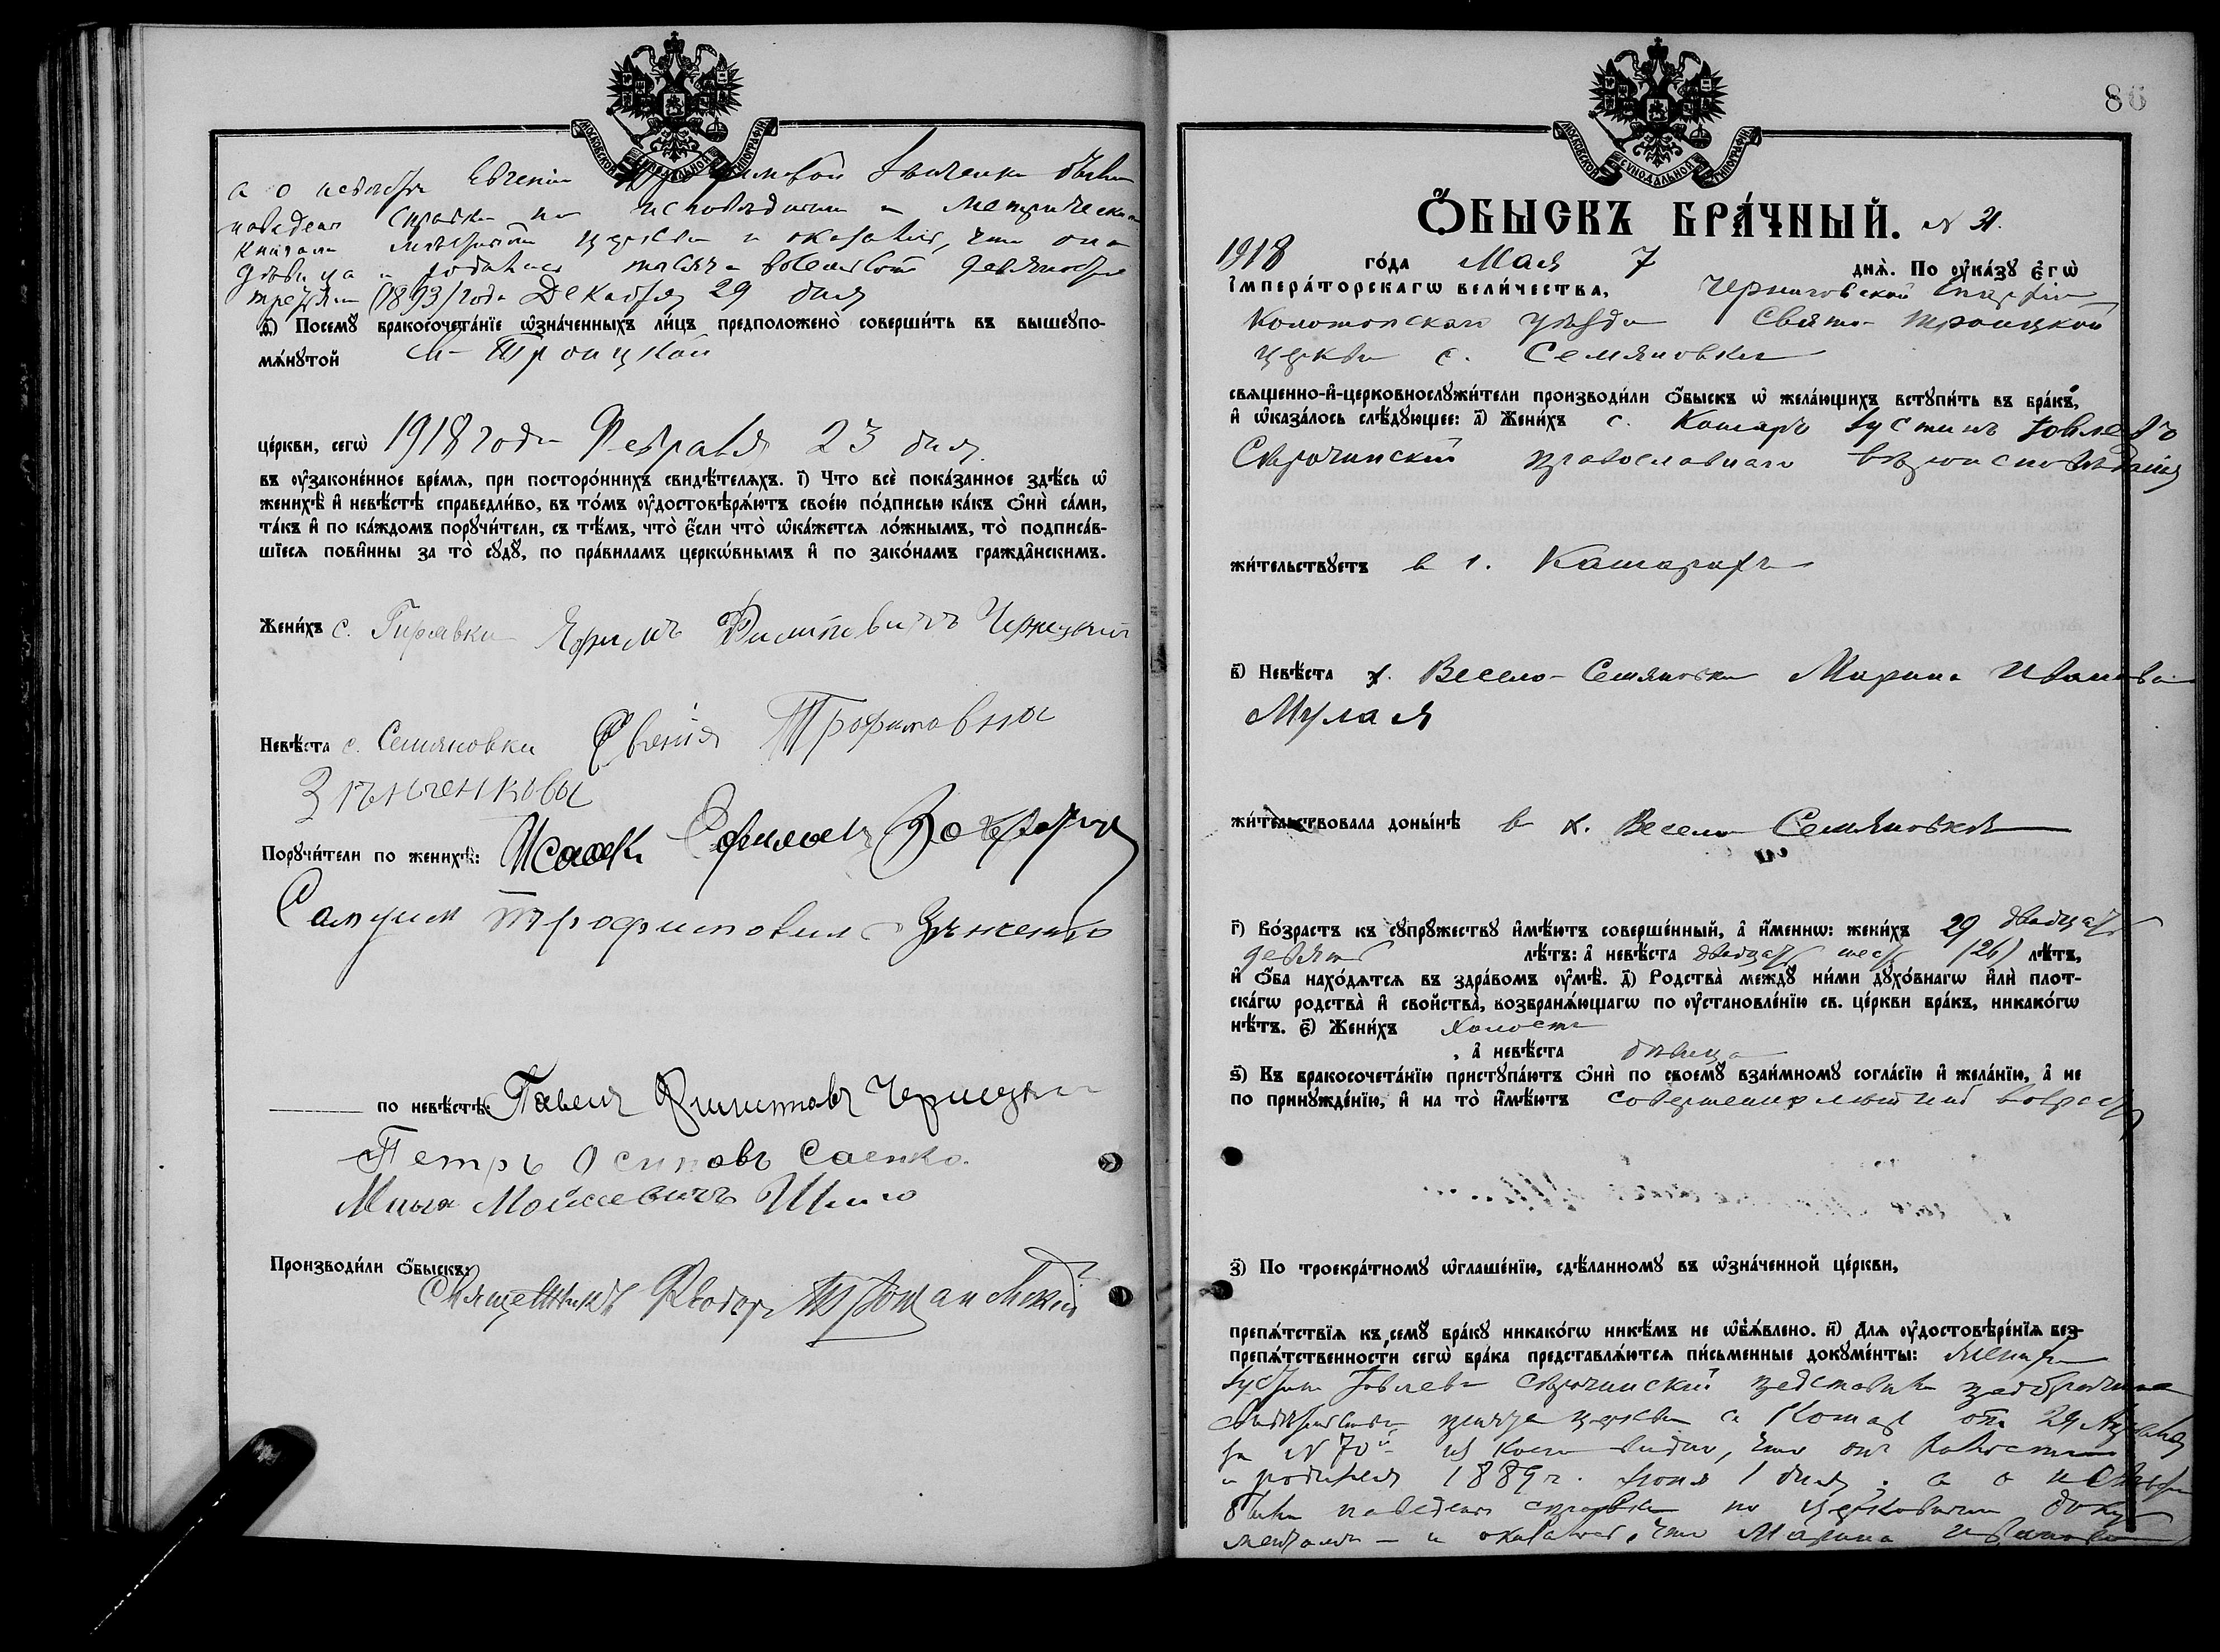 МОСКОВСКОЙ СѴНОДАЛЬНОЙ ТИПОГРАФІИ
а о невесте Евгении Трофимовой были
наведены справки по исповедным и метрическим
книгам местной церкви и оказалось, что она
девица и родилась тысяча восемьсот девяносто
третьяго (1893) года Декабря 29 дня
Посему̀ бракосочета́нїе ѡ҆зна́ченныхъ ли́цъ предположено̀ соверши́ть въ вышеупо-
мѧ́нутой Св-Троицкой
це́ркви, сегѡ̀ 1918 года Февраля 23 дня
въ ᲂу҆зако́ненное вре́мѧ, при посторо́ннихъ свидѣ́телѧхъ. і҃) Что̀ всѐ пока́занное здѣ́сь ѡ҆
женихѣ̀ и҆ невѣ́стѣ справедли́во, въ то́мъ ᲂу҆достовѣрѧ́ютъ свое́ю по́дписью ка́къ ѻ҆нѝ са́ми,
та́къ и҆ по ка́ждомъ поручи́тели, съ тѣ́мъ, что̀ є҆́сли что̀ ѡ҆ка́жетсѧ ло́жнымъ, то̀ подписа́в-
шїесѧ пови́нны за то̀ суду̀, по пра́виламъ церко́внымъ и҆ по зако́намъ гражда́нскимъ.
Жени́хъ с. Гирявки Ефимъ Филиповичъ Черницкий
Невѣ́ста с. Семяновки Евгения Трофимовны
Зѣнченковы
Поручи́тели по женихѣ̀: Исаакъ
Самуил Трофимович Зѣнченко
по невѣ́стѣ: Павелъ Филиповъ
Петръ Осиповъ Саенко.
Мина Мойсеевичъ
Производи́ли ѻ҆́быскъ:
Священникъ Ѳеодоръ
86
МОСКОВСКОЙ СѴНОДАЛЬНОЙ ТИПОГРАФІИ
Ѻ҆́БЫСКЪ БРА́ЧНЫЙ. N 31.
1918 го́да Мая 7 днѧ̀. По ᲂу҆ка́зу є҆гѡ̀
і҆мпера́торскагѡ вели́чества, Черниговской Епархіи
Конотопскаго уезда Свято-Троицкой
церкви с. Семяновки
свѧщенно-и҆-церковнослужи́тели производи́ли ѻ҆́быскъ ѡ҆ жела́ющихъ вступи́ть въ бра́къ,
и҆ ѡ҆каза́лось слѣ́дующее: а҃) Жени́хъ с. Кошаръ Іустинъ Іовлевъ
православнаго вероисповеданія
жи́тельствуетъ в с. Кошарахъ
в҃) Невѣ́ста х. Весело-Семяновки Марина Иванова
Мулая
жи́тельствовала доны́нѣ в х. Весело Семяновке
г҃) Во́зрастъ къ супру́жеству и҆мѣ́ютъ соверше́нный, а҆ и҆́меннѡ: жени́хъ 29 двадцать
девять лѣ́тъ: а҆ невѣ́ста двадцать шесть (26) лѣ́тъ,
и҆ ѻ҆́ба нахо́дѧтсѧ въ здра́вомъ ᲂу҆мѣ̀. д҃) Родства̀ между̀ ни́ми духо́внагѡ и҆лѝ плот-
ска́гѡ родства̀ и҆ сво́йства̀, возбранѧ́ющагѡ по ᲂу҆становле́нїю св. це́ркви бра́къ, никако́гѡ
нѣ́тъ. є҃) Жени́хъ холостъ
, а҆ невѣ́ста девица
ѕ҃) Къ бракосочета́нїю приступа́ютъ ѻ҆нѝ по своему̀ взаи́мному согла́сїю и҆ жела́нїю, а҆ не
по принужде́нїю, и҆ на то̀ и҆мѣ́ютъ совершеннолетній возрастъ
з҃) По троекра́тному ѡ҆глаше́нїю, сдѣ́ланному въ ѡ҆зна́ченной це́ркви,
препѧ́тствїѧ къ сему̀ бра́ку никако́гѡ никѣ́мъ не ѡ҆б̾ѧ́влено. и҃) Длѧ ᲂу҆достовѣре́нїѧ без-
препѧ́тственности сегѡ̀ бра́ка представлѧ́ютсѧ пи́сьменные докуме́нты: женихъ
Іустинъ Іовлевъ представилъ предбрачное
свидетельство причта церкви с Кошаръ отъ 29 Апреля
за N 70 изъ коего видно, что онъ холостъ
и родился 1889 г. Іюня 1 дня; а о невесте
были наведены справки по церковнымъ доку
ментамъ – и оказалось, что Марина Иванова